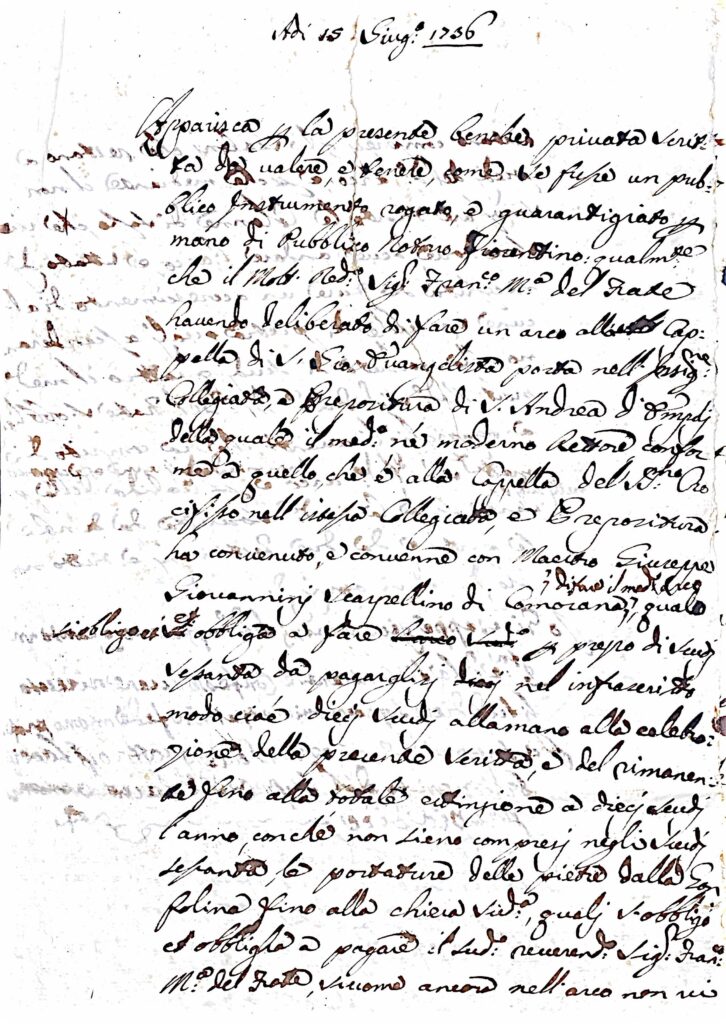 Adi 15 Giug.º 1736
Apparisca p la presente benche privata scrit-
ta da valere, e tenere, come se fusse un pub-
blico Instrumento rogato, e guarantigiato p
mano di Pubblico Notaro Fiorentino: qualm.te
che il Molt. Red.º Sig.r Fran.co M.a del Frate
havendo deliberato di fare un arco alla Cap-
pella di S. Gio: Evangelista posta nell' Insig.ne
Collegiata, e Prepositura di S. Andrea d' Empolj
della quale il med.º n'é moderno Rettore confor
me a quello, che é alla Cappella del SS.mo Cro
cifisso nell' istessa Collegiata, e Prepositura
ha convenuto, e convenne con Maestro Giuseppe
Giovanninj Scarpellino di Comorana, quale
di fare il med.º Arco
si obbligò et obbliga a fare p prezzo di scudi
sessanta da pagarglisj nel infrascritto
modo cioé diecj scudj alla mano alla celebra-
zione della presente scritta, e del rimanen-
te fino alla totale estinzione a diecj scudj
l'anno, con ché non sieno compresj neglj scudj
sessanta, le portature delle pietre dalla Gon
folina fino alla chiesa sud.a, qualj s'obbligò
et obbliga a pagare il sud.º reverend.º Sig.r Fran.co
M.a del Frate, siccome ancora nell' arco non vi